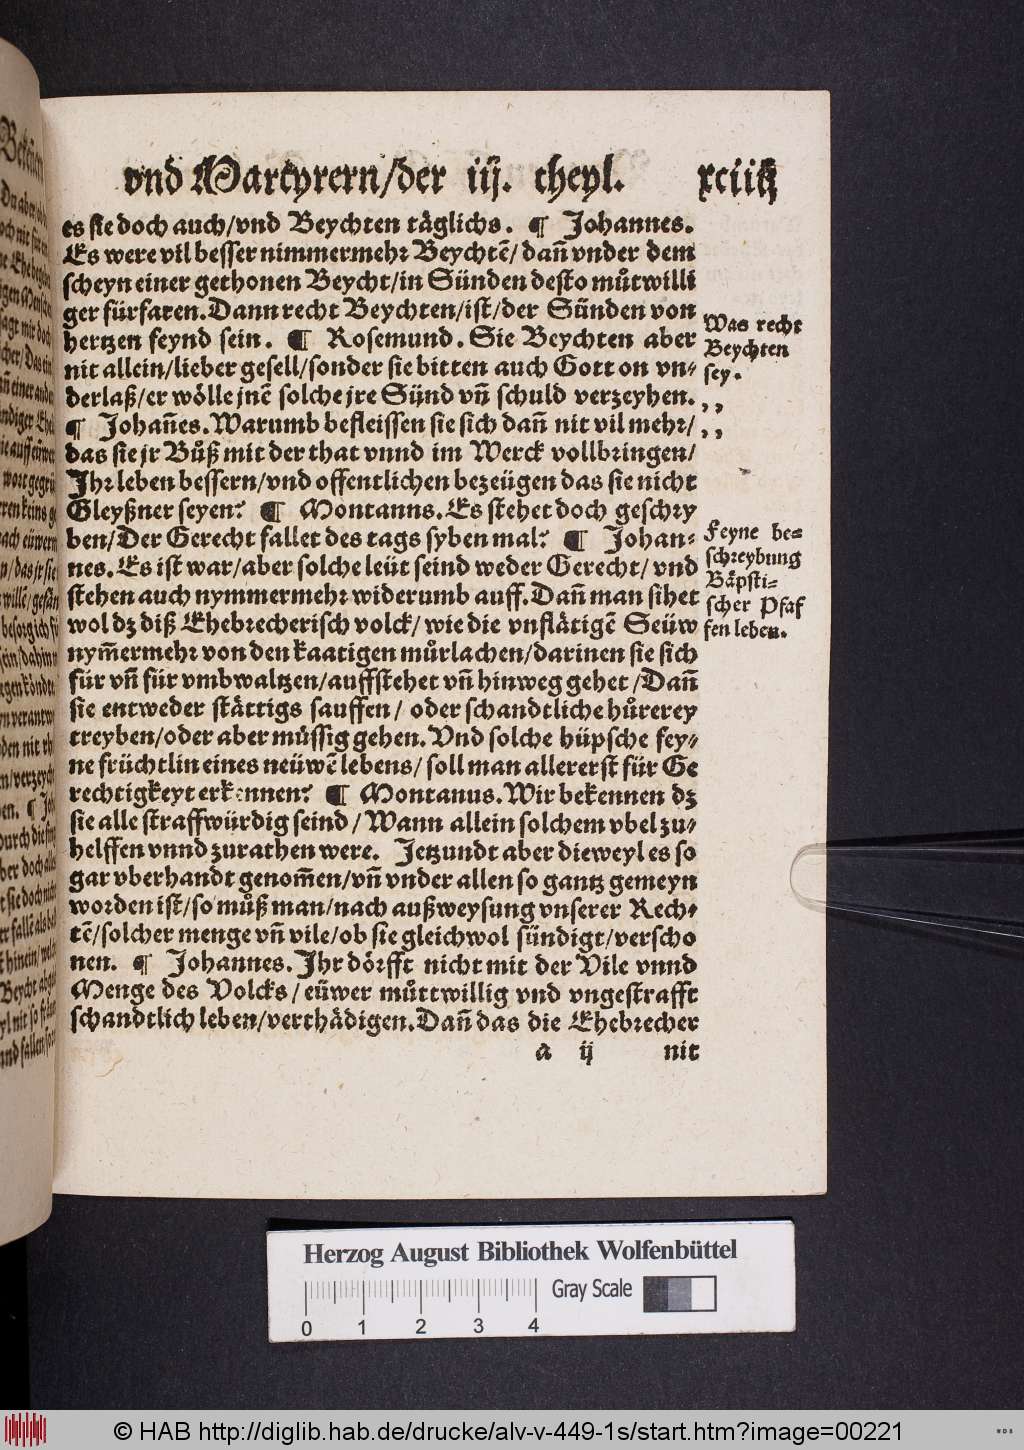 vnd Martyrern/der iij. theyl. xciiij
es sie doch auch/vnd Beychten täglichs. ¶ Johannes.
Es were vil besser nimmermehr Beychtẽ/dañ vnder dem
scheyn einer gethonen Beycht/in Sünden desto můtwilli
ger fürfaren. Dann recht Beychten/ist/der Sünden von
hertzen feynd sein. ¶ Rosemund. Sie Beychten aber
nit allein/lieber gesell/sonder sie bitten auch Gott on vn-
derlaß/er wölle jnẽ solche jre Sünd vñ schuld verzeyhen.
¶ Johañes. Warumb befleissen sie sich dañ nit vil mehr/
das sie jr Bůß mit der that vnnd im Werck vollbringen/
Ihr leben bessern/vnd offentlichen bezeügen das sie nicht
Gleyßner seyen? ¶ Montanns. Es stehet doch geschry
ben/Der Gerecht fallet des tags syben mal? ¶ Johan-
nes. Es ist war/aber solche leüt seind weder Gerecht/vnd
stehen auch nymmermehr widerumb auff. Dañ man sihet
wol dz diß Ehebrecherisch volck/wie die vnflätigẽ Seüw
nym̃ermehr von den kaatigen můrlachen/darinen sie sich
für vñ für vmbwaltzen/auffstehet vñ hinweg gehet/Dañ
sie entweder stättigs sauffen/oder schandtliche hůrerey
treyben/oder aber müssig gehen. Vnd solche hüpsche fey-
ne früchtlin eines neüwẽ lebens/soll man allererst für Ge
rechtigkeyt erkennen? ¶ Montanus. Wir bekennen dz
sie alle straffwürdig seind/Wann allein solchem vbel zu-
helffen vnnd zurathen were. Jetzundt aber dieweyl es so
gar vberhandt genom̃en/vñ vnder allen so gantz gemeyn
worden ist/so můß man/nach außweysung vnserer Rech-
tẽ/solcher menge vñ vile/ob sie gleichwol sündigt/verscho
nen. ¶ Johannes. Ihr dörfft nicht mit der Vile vnnd
Menge des Volcks/eüwer můttwillig vnd vngestrafft
schandtlich leben/verthädigen. Dañ das die Ehebrecher
a ij nit
Was recht
Beychten
sey.
,,
,,
Feyne be-
schreybung
Bäpsti-
scher Pfaf
fen leben.
Herzog August Bibliothek Wolfenbüttel
Gray Scale
0 1 2 3 4
© HAB http://diglib.hab.de/drucke/alv-v-449-1s/start.htm?image=00221